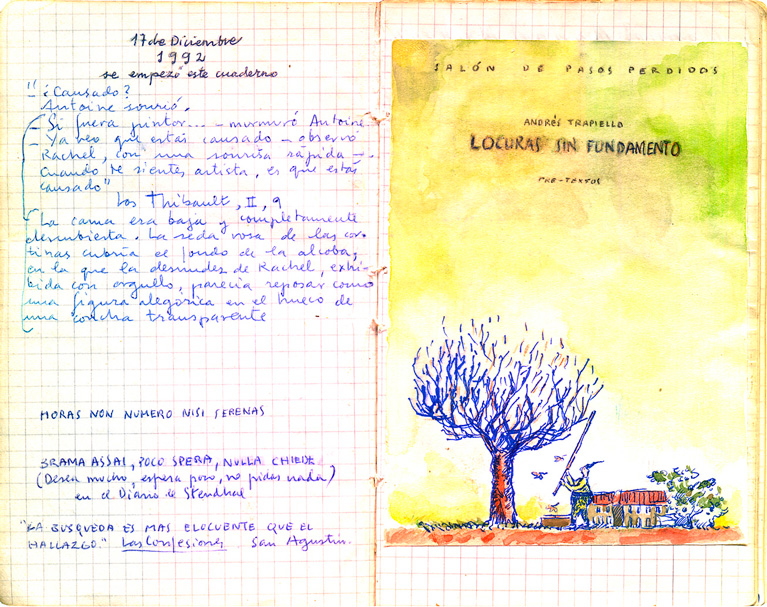 17 de Diciembre
1992
se empezó este cuaderno
"¿Causado?
Antoine sonrió.
– Si fuera pintor... – murmuró Antoine
– Ya veo que estás causado – observó
Rachel, con una sonrisa rápida –.
Cuando te sientes artista, es que estás
causado"
Los Thibault, II, 9
La cama era baja y completamente
descubierta. La seda rosa de las cor-
tinas cubría el fondo de la alcoba,
en la que la desnudez de Rachel, exhi-
bida con orgullo, parecía reposar como
una figura alegórica en el hueco de
una concha transparente
HORAS NON NUMERO NISI SERENAS
BRAMA ASSAI, POCO SPERA, NULLA CHIEDE
(Desea mucho, espera poco, no pidas nada)
en el Diario de Stendhal
"LA BUSQUEDA ES MAS ELOCUENTE QUE EL
HALLAZGO." Las Confesiones, San Agustín.
SALÓN DE PASOS PERDIDOS
ANDRÉS TRAPIELLO
LOCURAS SIN FUNDAMENTO
PRE-TEXTOS